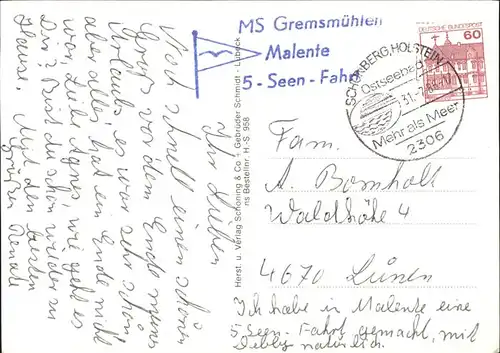 MS Gremsmühlen
Malente
5-Seen-Fahrt
DEUTSCHE BUNDESPOST
60
SCHÖNBERG, HOLSTEIN
Ostseebad
31.-7.
Mehr als Meer
2306
Ihr Lieben
Noch schnell einen schönen
Gruß vor dem Ende meines
Urlaubs, es war sehr schön
aber alles hat ein Ende nicht
war, Liebe Agnes, wie geht es
Dir? Bist du schon wieder zu
Hause. Mit den besten
Grüßen Renate
Herst. u. Verlag Schöning & Co · Gebrüder Schmidt · Lübeck
Bestellnr. H.-S. 958
Fam.
A. Bomholt
Waldhöhe 4
4670 Lünen
Ich habe in Malente eine
5-Seen-Fahrt gemacht, mit
natürlich.